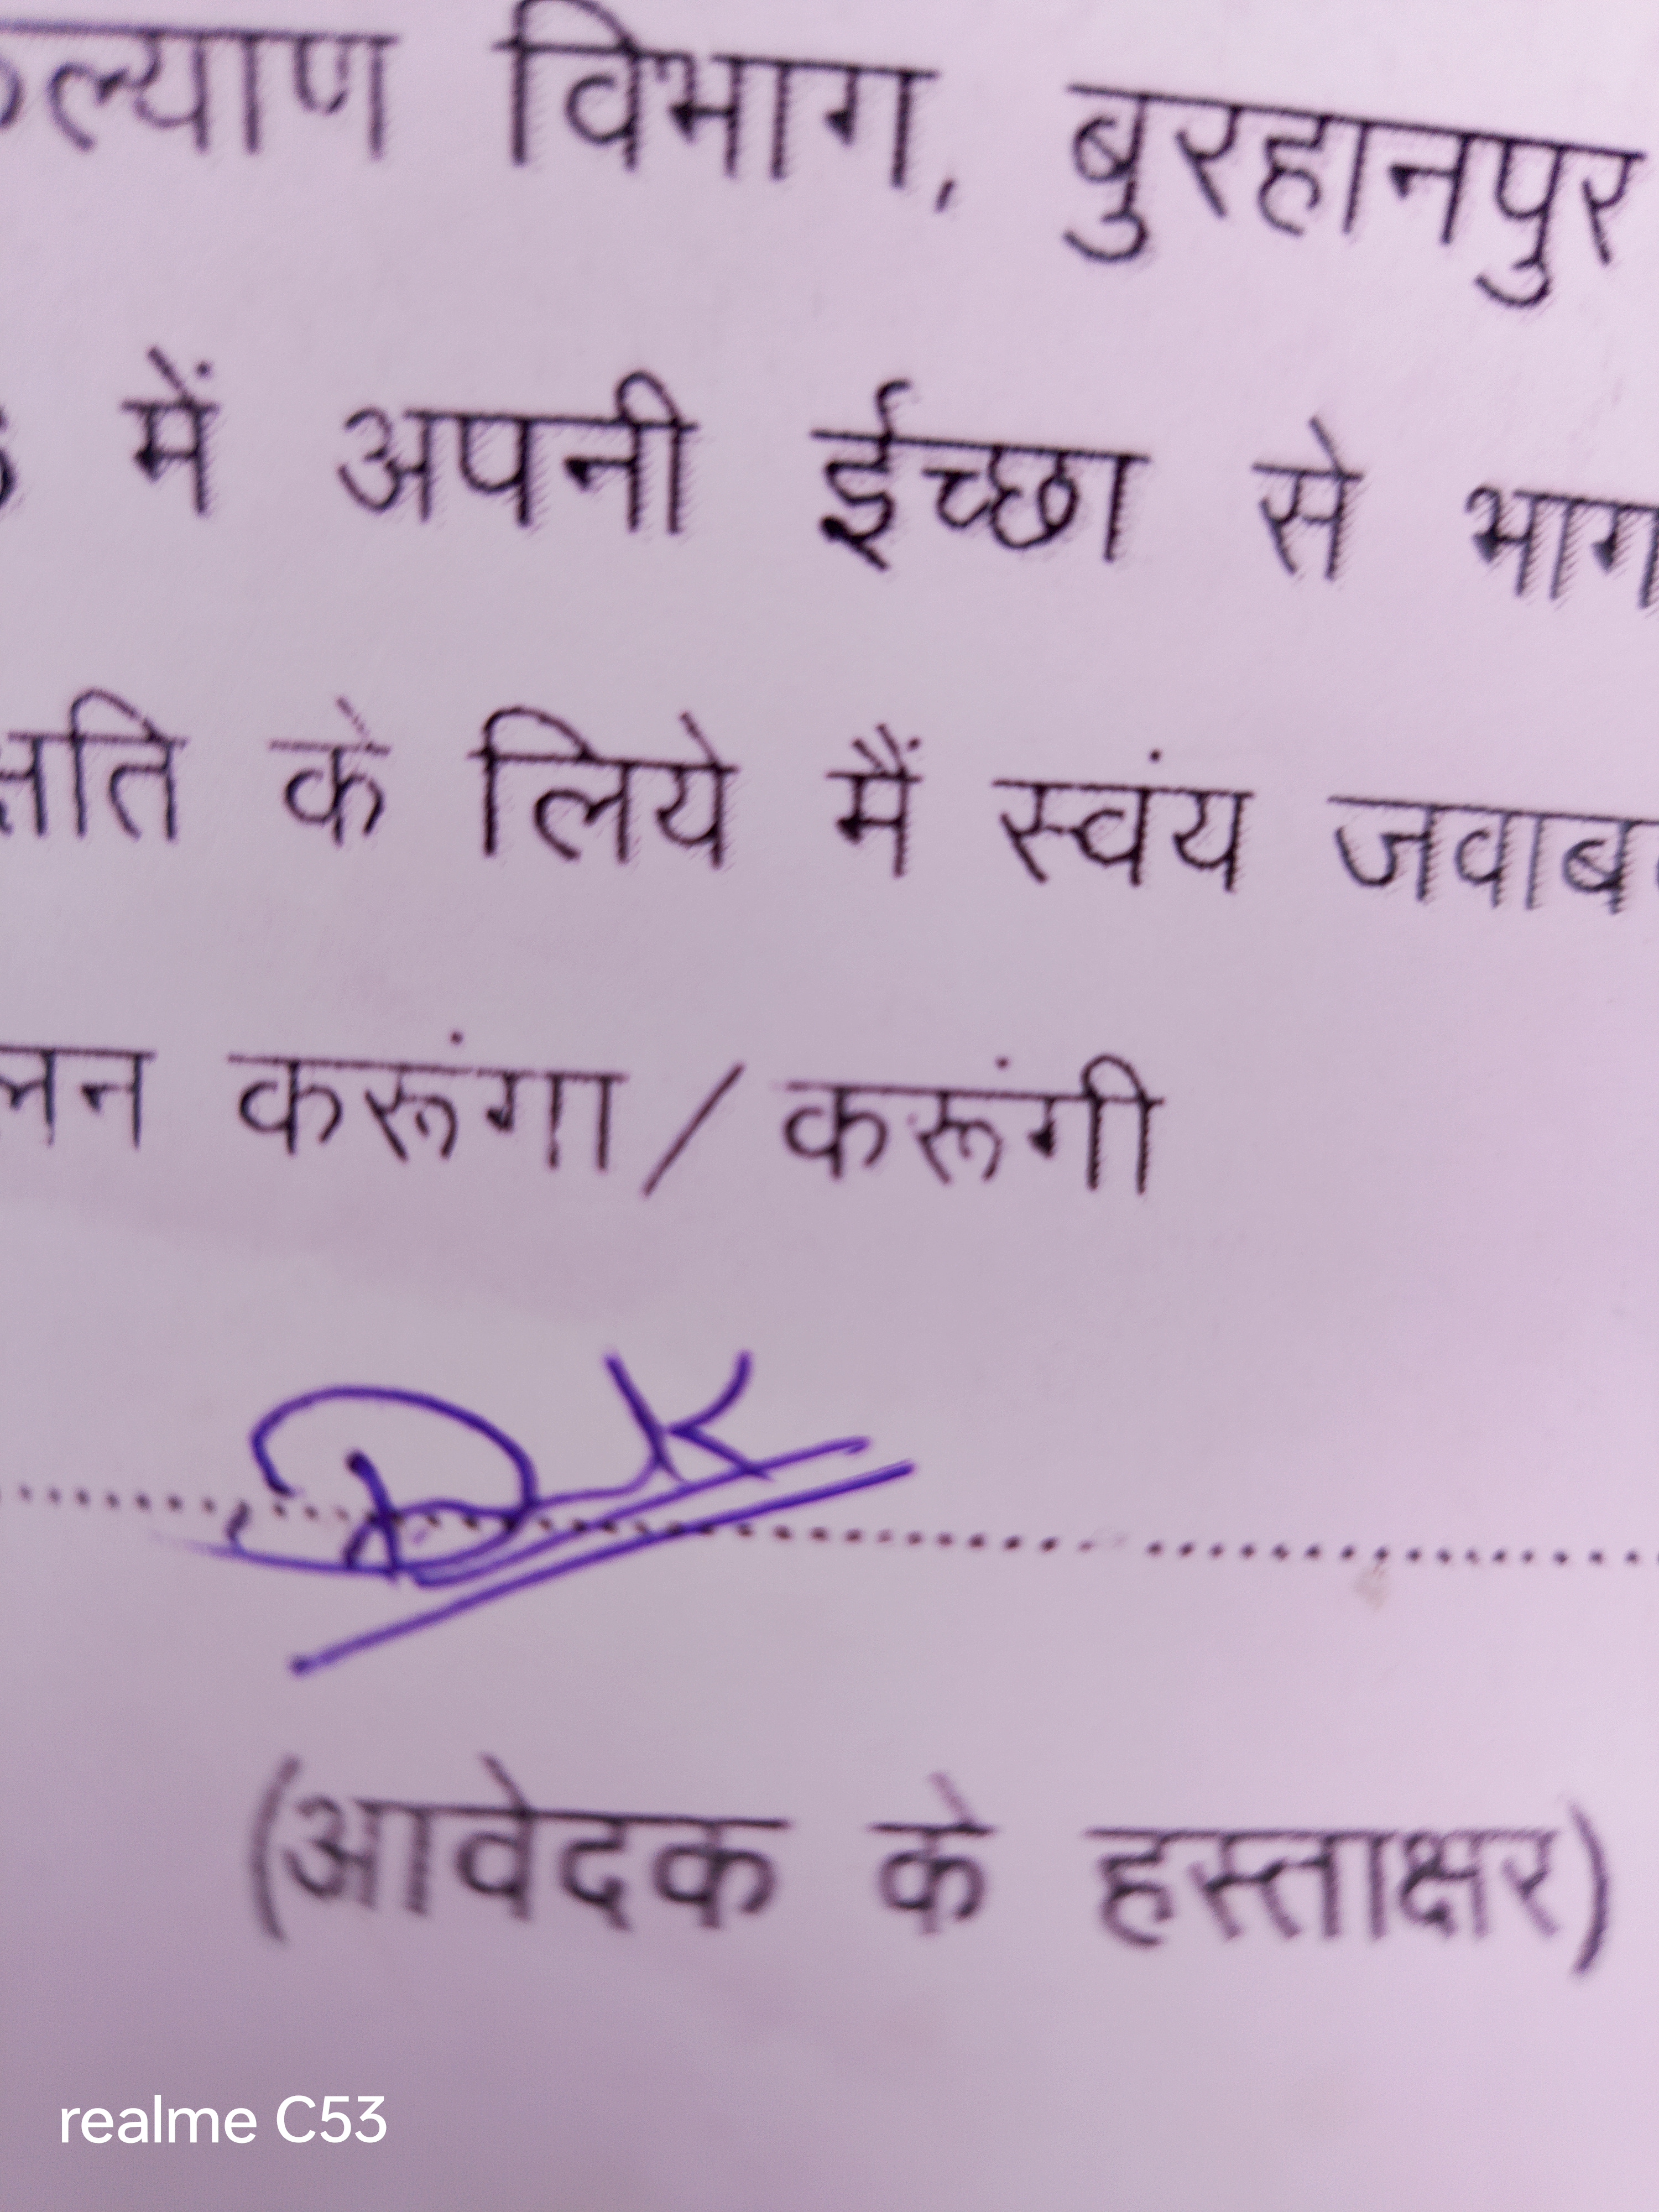 कल्याण विभाग, बुरहानपुर
में अपनी ईच्छा से भाग
क्षति के लिये मैं स्वंय जवाब
लन करूंगा/करूंगी
(आवेदक के हस्ताक्षर)
realme C53